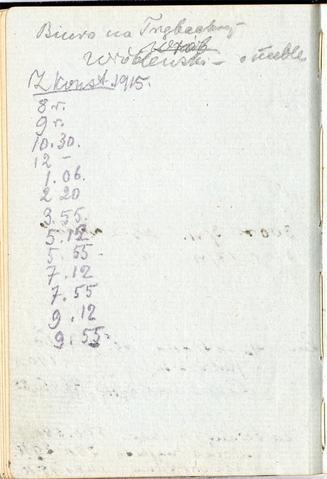 Biuro na Trębackiej
Wróblewski - o meble
Z Konst. 1915.
8 r.
9 r.
10.30.
12 -
1.06.
2 20
3.55.
5.12
5.55-
7.12
7.55
9.12
9.55-